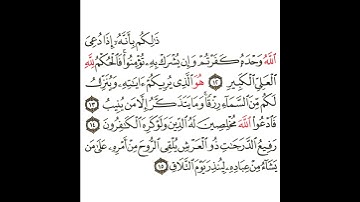 ذَٰلِكُم بِأَنَّهُۥٓ إِذَا دُعِىَ
ٱللَّهُ وَحْدَهُۥ كَفَرْتُمْ وَإِن يُشْرَكْ بِهِۦ تُؤْمِنُوا۟ فَٱلْحُكْمُ لِلَّهِ
ٱلْعَلِىِّ ٱلْكَبِيرِ ١٢ هُوَ ٱلَّذِى يُرِيكُمْ ءَايَٰتِهِۦ وَيُنَزِّلُ
لَكُم مِّنَ ٱلسَّمَآءِ رِزْقًا وَمَا يَتَذَكَّرُ إِلَّا مَن يُنِيبُ ١٣
فَٱدْعُوا۟ ٱللَّهَ مُخْلِصِينَ لَهُ ٱلدِّينَ وَلَوْ كَرِهَ ٱلْكَٰفِرُونَ ١٤
رَفِيعُ ٱلدَّرَجَٰتِ ذُو ٱلْعَرْشِ يُلْقِى ٱلرُّوحَ مِنْ أَمْرِهِۦ عَلَىٰ مَن
يَشَآءُ مِنْ عِبَادِهِۦ لِيُنذِرَ يَوْمَ ٱلتَّلَاقِ ١٥